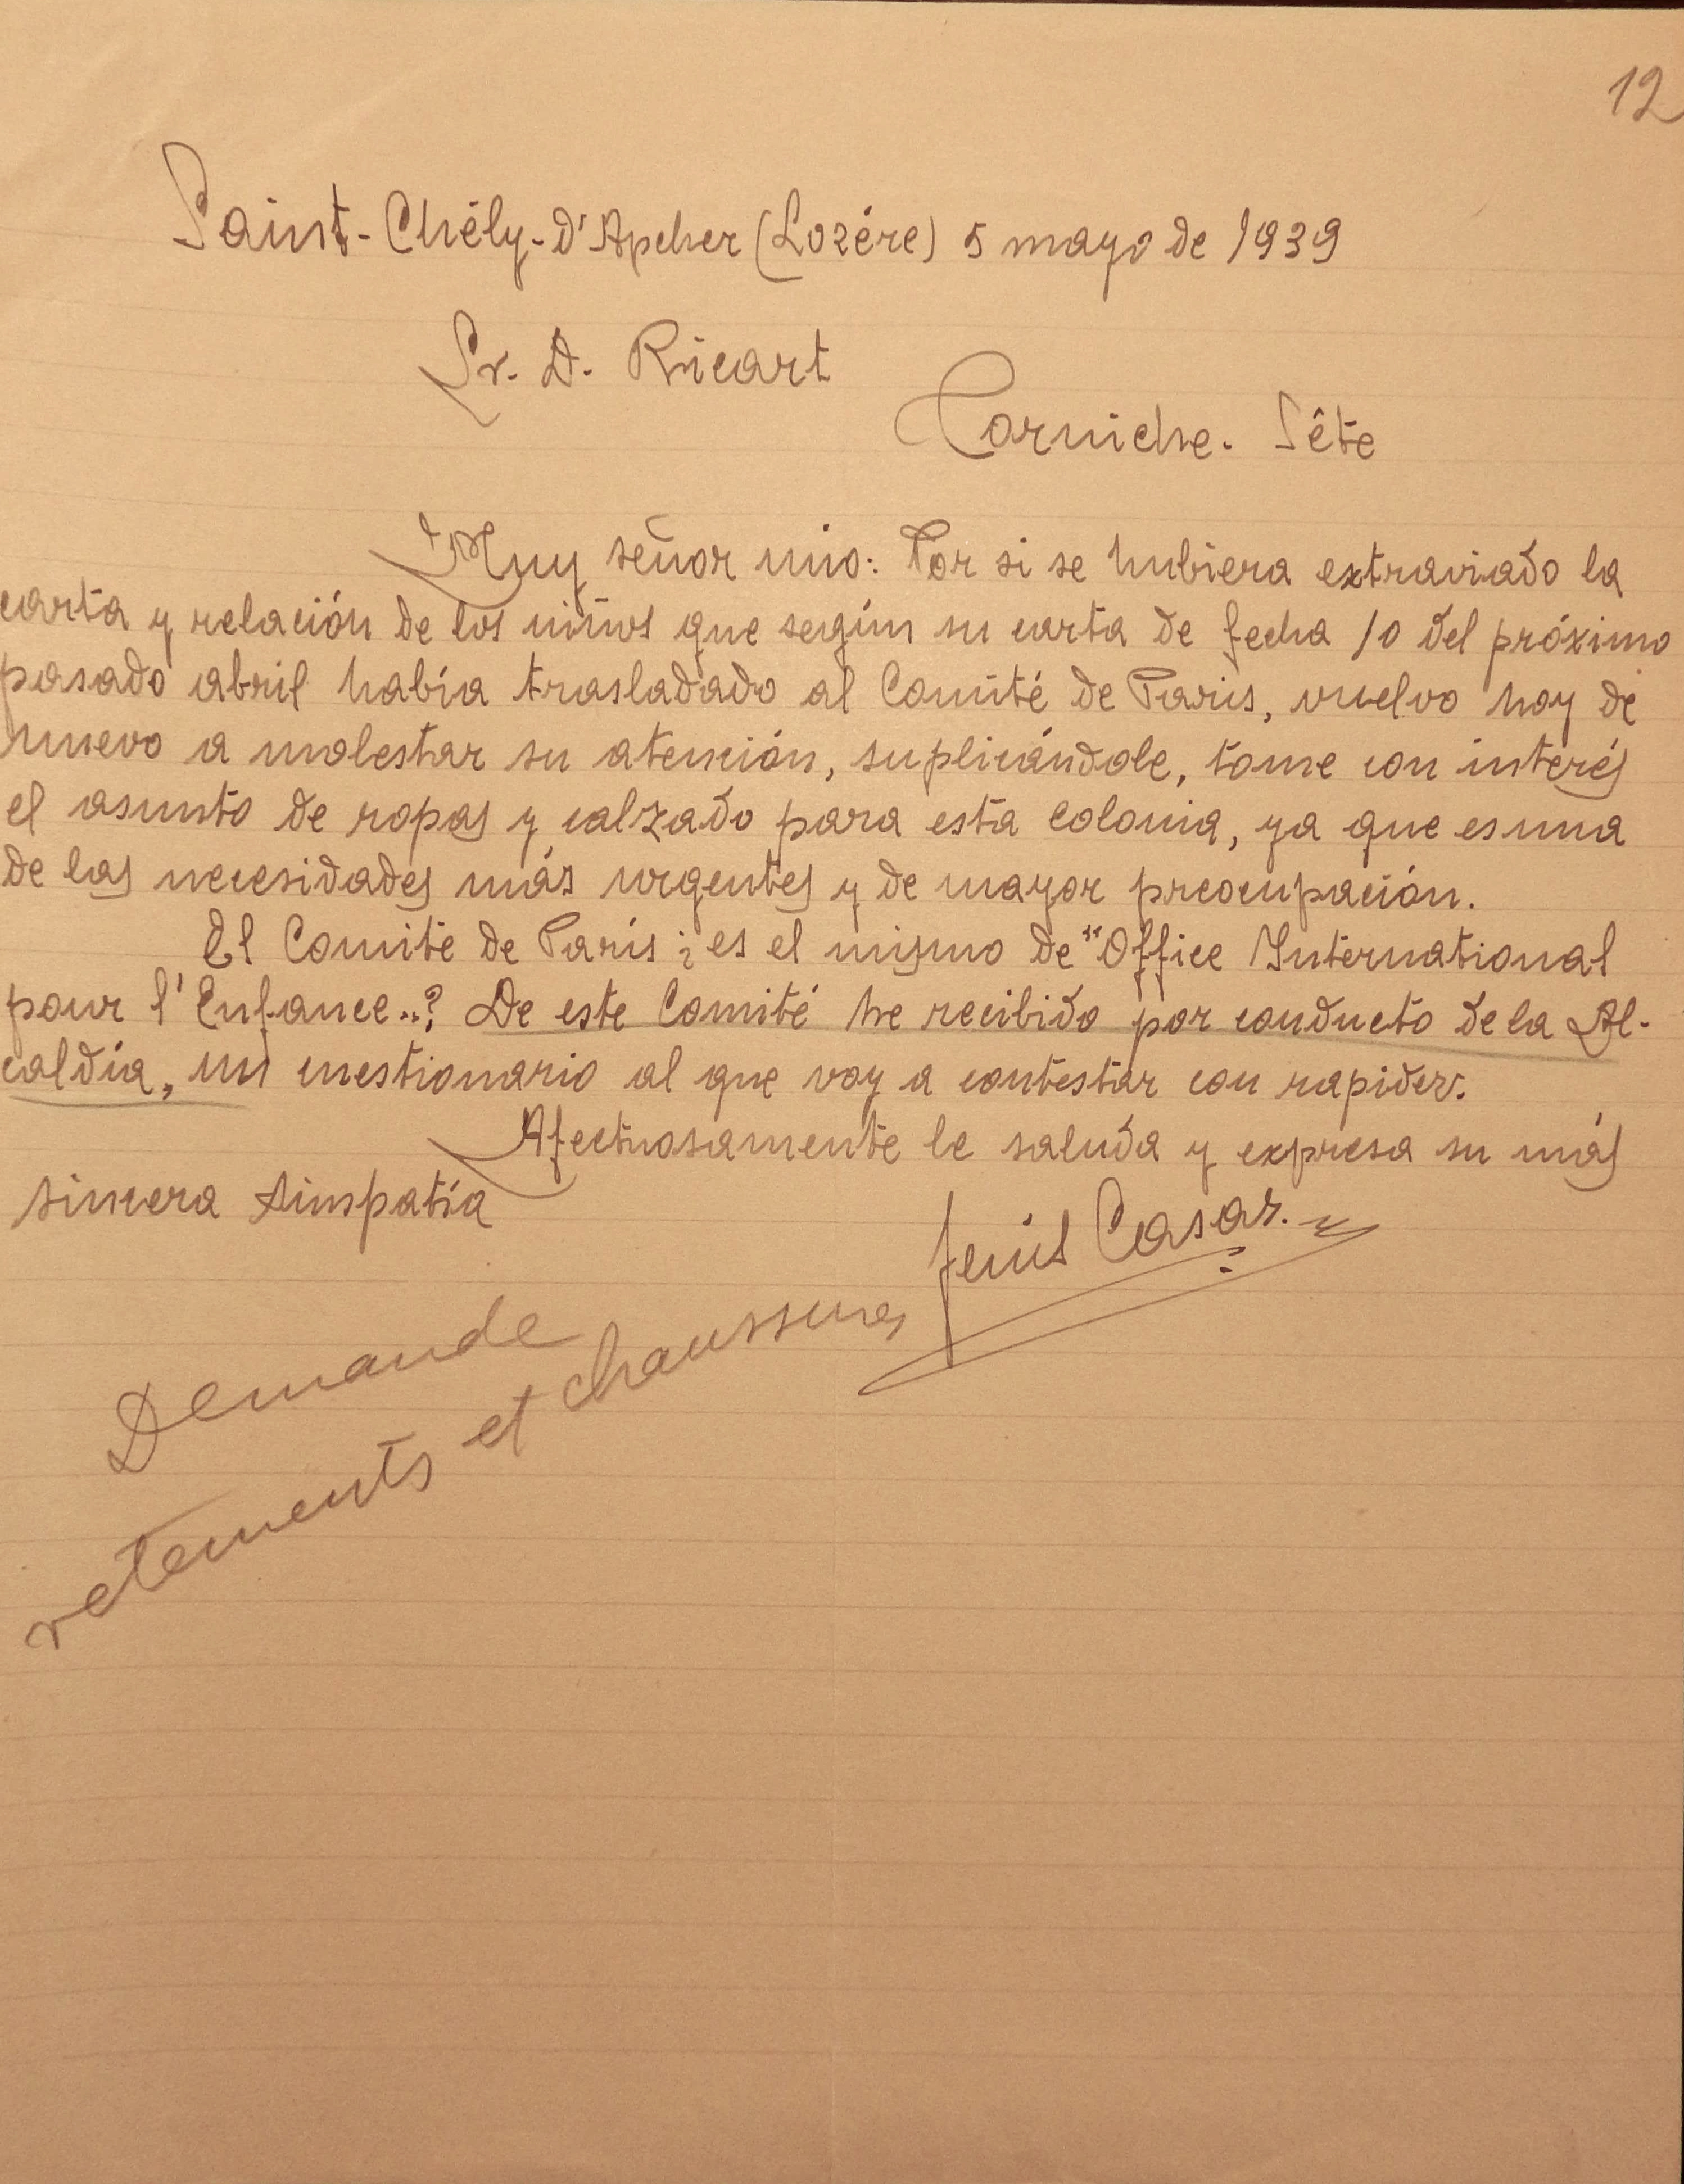 12
Saint-Chély-D'Apcher (Lozére) 5 mayo de 1939
Sr. D. Ricart
Corniche. Sête
Muy señor mio: Por si se hubiera extraviado la
carta y relación de los niños que según su carta de fecha 10 del próximo
pasado abril había trasladado al Comité de Paris, vuelvo hoy de
nuevo a molestar su atención, suplicándole, tome con interés
el asunto de ropas y calzado para esta colonia, ya que es una
de las necesidades más urgentes y de mayor preocupación.
El Comité de París ¿es el mismo de "Office International
pour l'Enfance..? De este Comité he recibido por conducto de la Al-
caldía, un cuestionario al que voy a contestar con rapidez.
Afectuosamente le saluda y expresa su más
sincera simpatía
Jesús Casas.
Demande
vetements et chaussures